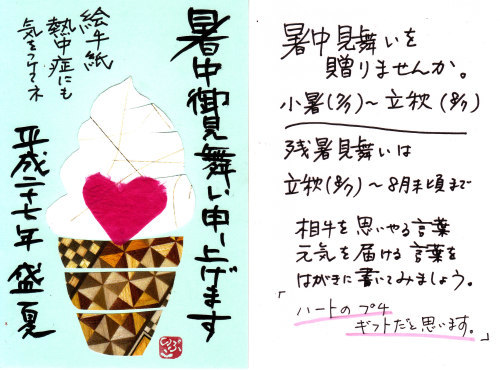 暑中御見舞い申し上げます
絵手紙
熱中症にも
気をつけてネ
平成二十七年 盛夏
暑中見舞いを
贈りませんか。
小暑(7/7)〜立秋(8/7)
残暑見舞いは
立秋(8/7)〜8月末頃まで
相手を思いやる言葉
元気を届ける言葉を
はがきに書いてみましょう。
「ハートのプチ
ギフトだと思います。」